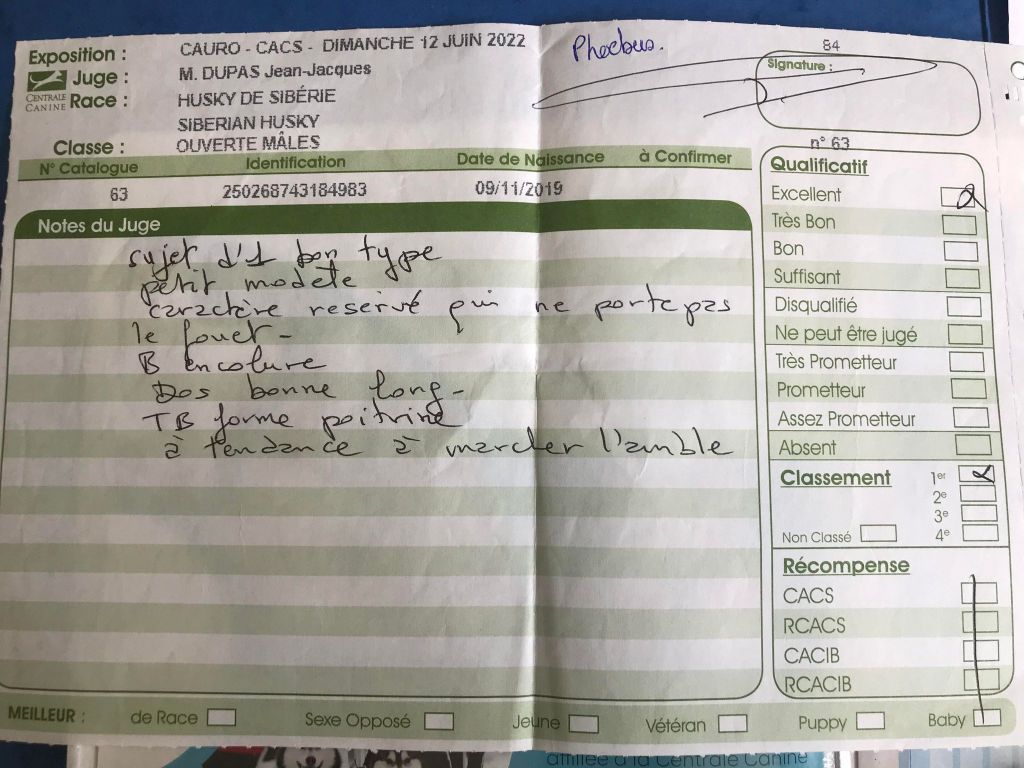 Exposition : CAURO - CACS - DIMANCHE 12 JUIN 2022
Phoebus.
84
Juge : M. DUPAS Jean-Jacques
Signature :
CENTRALE CANINE
Race : HUSKY DE SIBÉRIE
SIBERIAN HUSKY
Classe : OUVERTE MÂLES
n° 63
N° Catalogue Identification Date de Naissance à Confirmer
63 250268743184983 09/11/2019
Notes du Juge
sujet d'1 bon type
petit modele
caractère reservé qui ne porte pas
le fouet -
B encolure
Dos bonne long -
TB forme poitrine
à tendance à marcher l'amble
Qualificatif
Excellent
Très Bon
Bon
Suffisant
Disqualifié
Ne peut être jugé
Très Prometteur
Prometteur
Assez Prometteur
Absent
Classement 1er
2e
3e
Non Classé 4e
Récompense
CACS
RCACS
CACIB
RCACIB
MEILLEUR : de Race Sexe Opposé Jeune Vétéran Puppy Baby
affiliée à la Centrale Canine